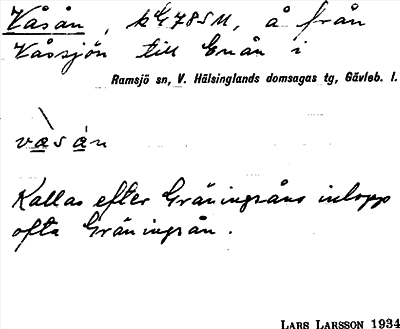 Våsån, k G 78 S M, å från
Våssjön till Enån i
Ramsjö sn, V. Hälsinglands domsagas tg, Gävleb. l.
vàsán
Kallas efter Gräningsåns inlopp
ofta Gräningsån.
LARS LARSSON 1934